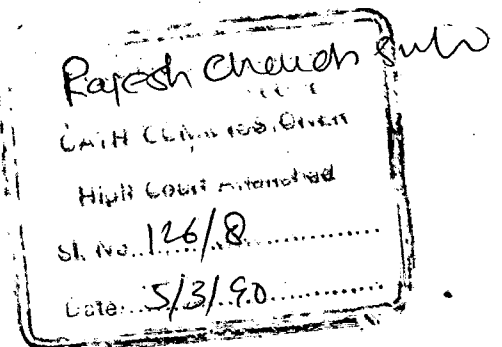 Rajesh Chandra
OATH COMMISSIONER
High Court Allahabad
Sl. No. 126/8
Date: 5/3/90